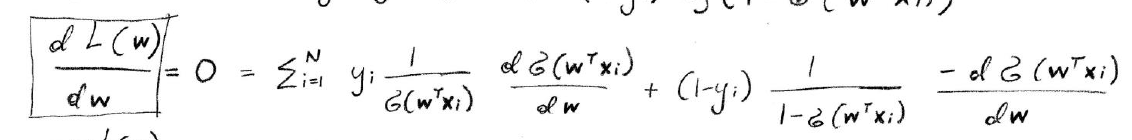 dL(w)/dw = 0 = Σ_{i=1}^{N} y_i 1/σ(w^T x_i) dσ(w^T x_i)/dw + (1-y_i) 1/(1-σ(w^T x_i)) -dσ(w^T x_i)/dw